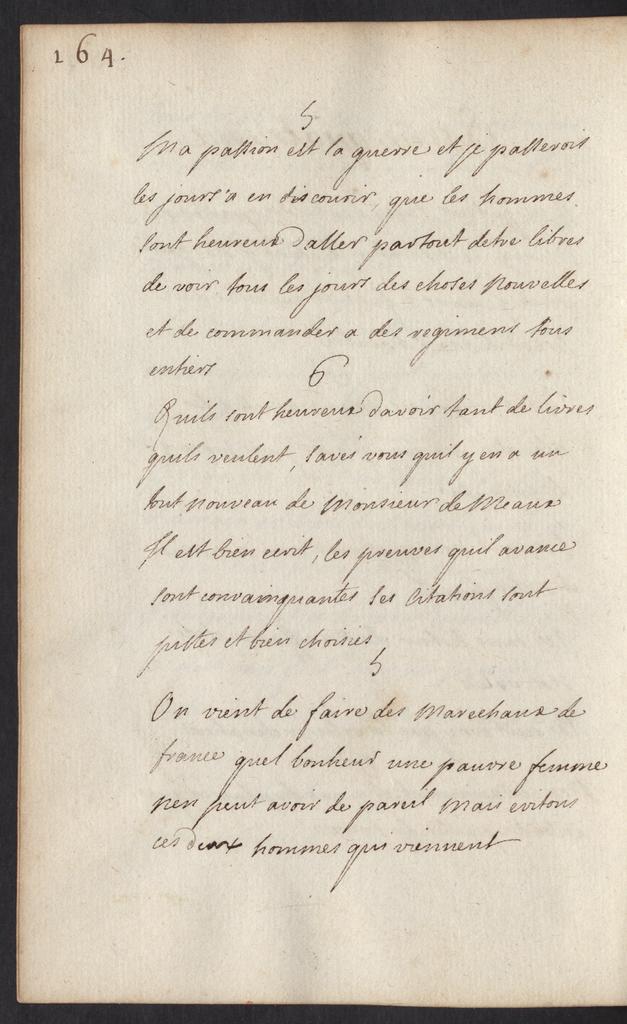 164.
5
Ma passion est la guerre et je passerois
les jours a en discourir, que les hommes
sont heureux daller partout detre libres
de voir tous les jours des choses nouvelles
et de commander a des regimens tous
entiers
6
Quils sont heureux davoir tant de livres
quils veulent, savés vous quil y en a un
tout nouveau de Monsieur de Meaux
Il est bien ecrit, les preuves quil avance
sont convainquantes ses citations sont
justes et bien choisies
5
On vient de faire des Marechaux de
france quel bonheur une pauvre femme
nen peut avoir de pareil mais evitons
ces deux hommes qui viennent